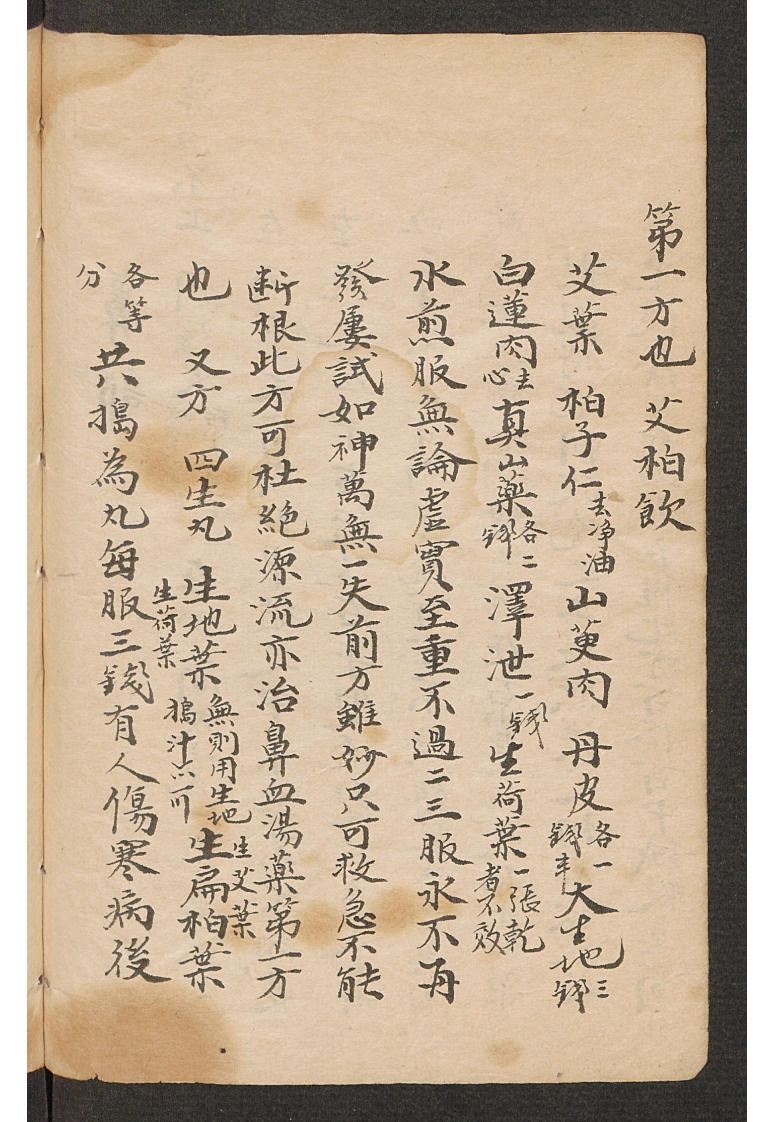 第一方也 艾柏飲
艾葉 柏子仁去净油山萸肉 丹皮各一錢半大生地三錢
白蓮肉去心真山藥各二錢澤泄一錢生荷葉一張乾者不效
水煎服無論虛實至重不過二三服永不再
發屢試如神萬無一失前方雖妙只可救急不能
断根此方可杜絶源流亦治鼻血湯藥第一方
也 又方 四生丸 生地葉無則用生地搗汁亦可生扁柏葉生艾葉生荷葉
各等分共搗為丸每服三錢有人傷寒病後